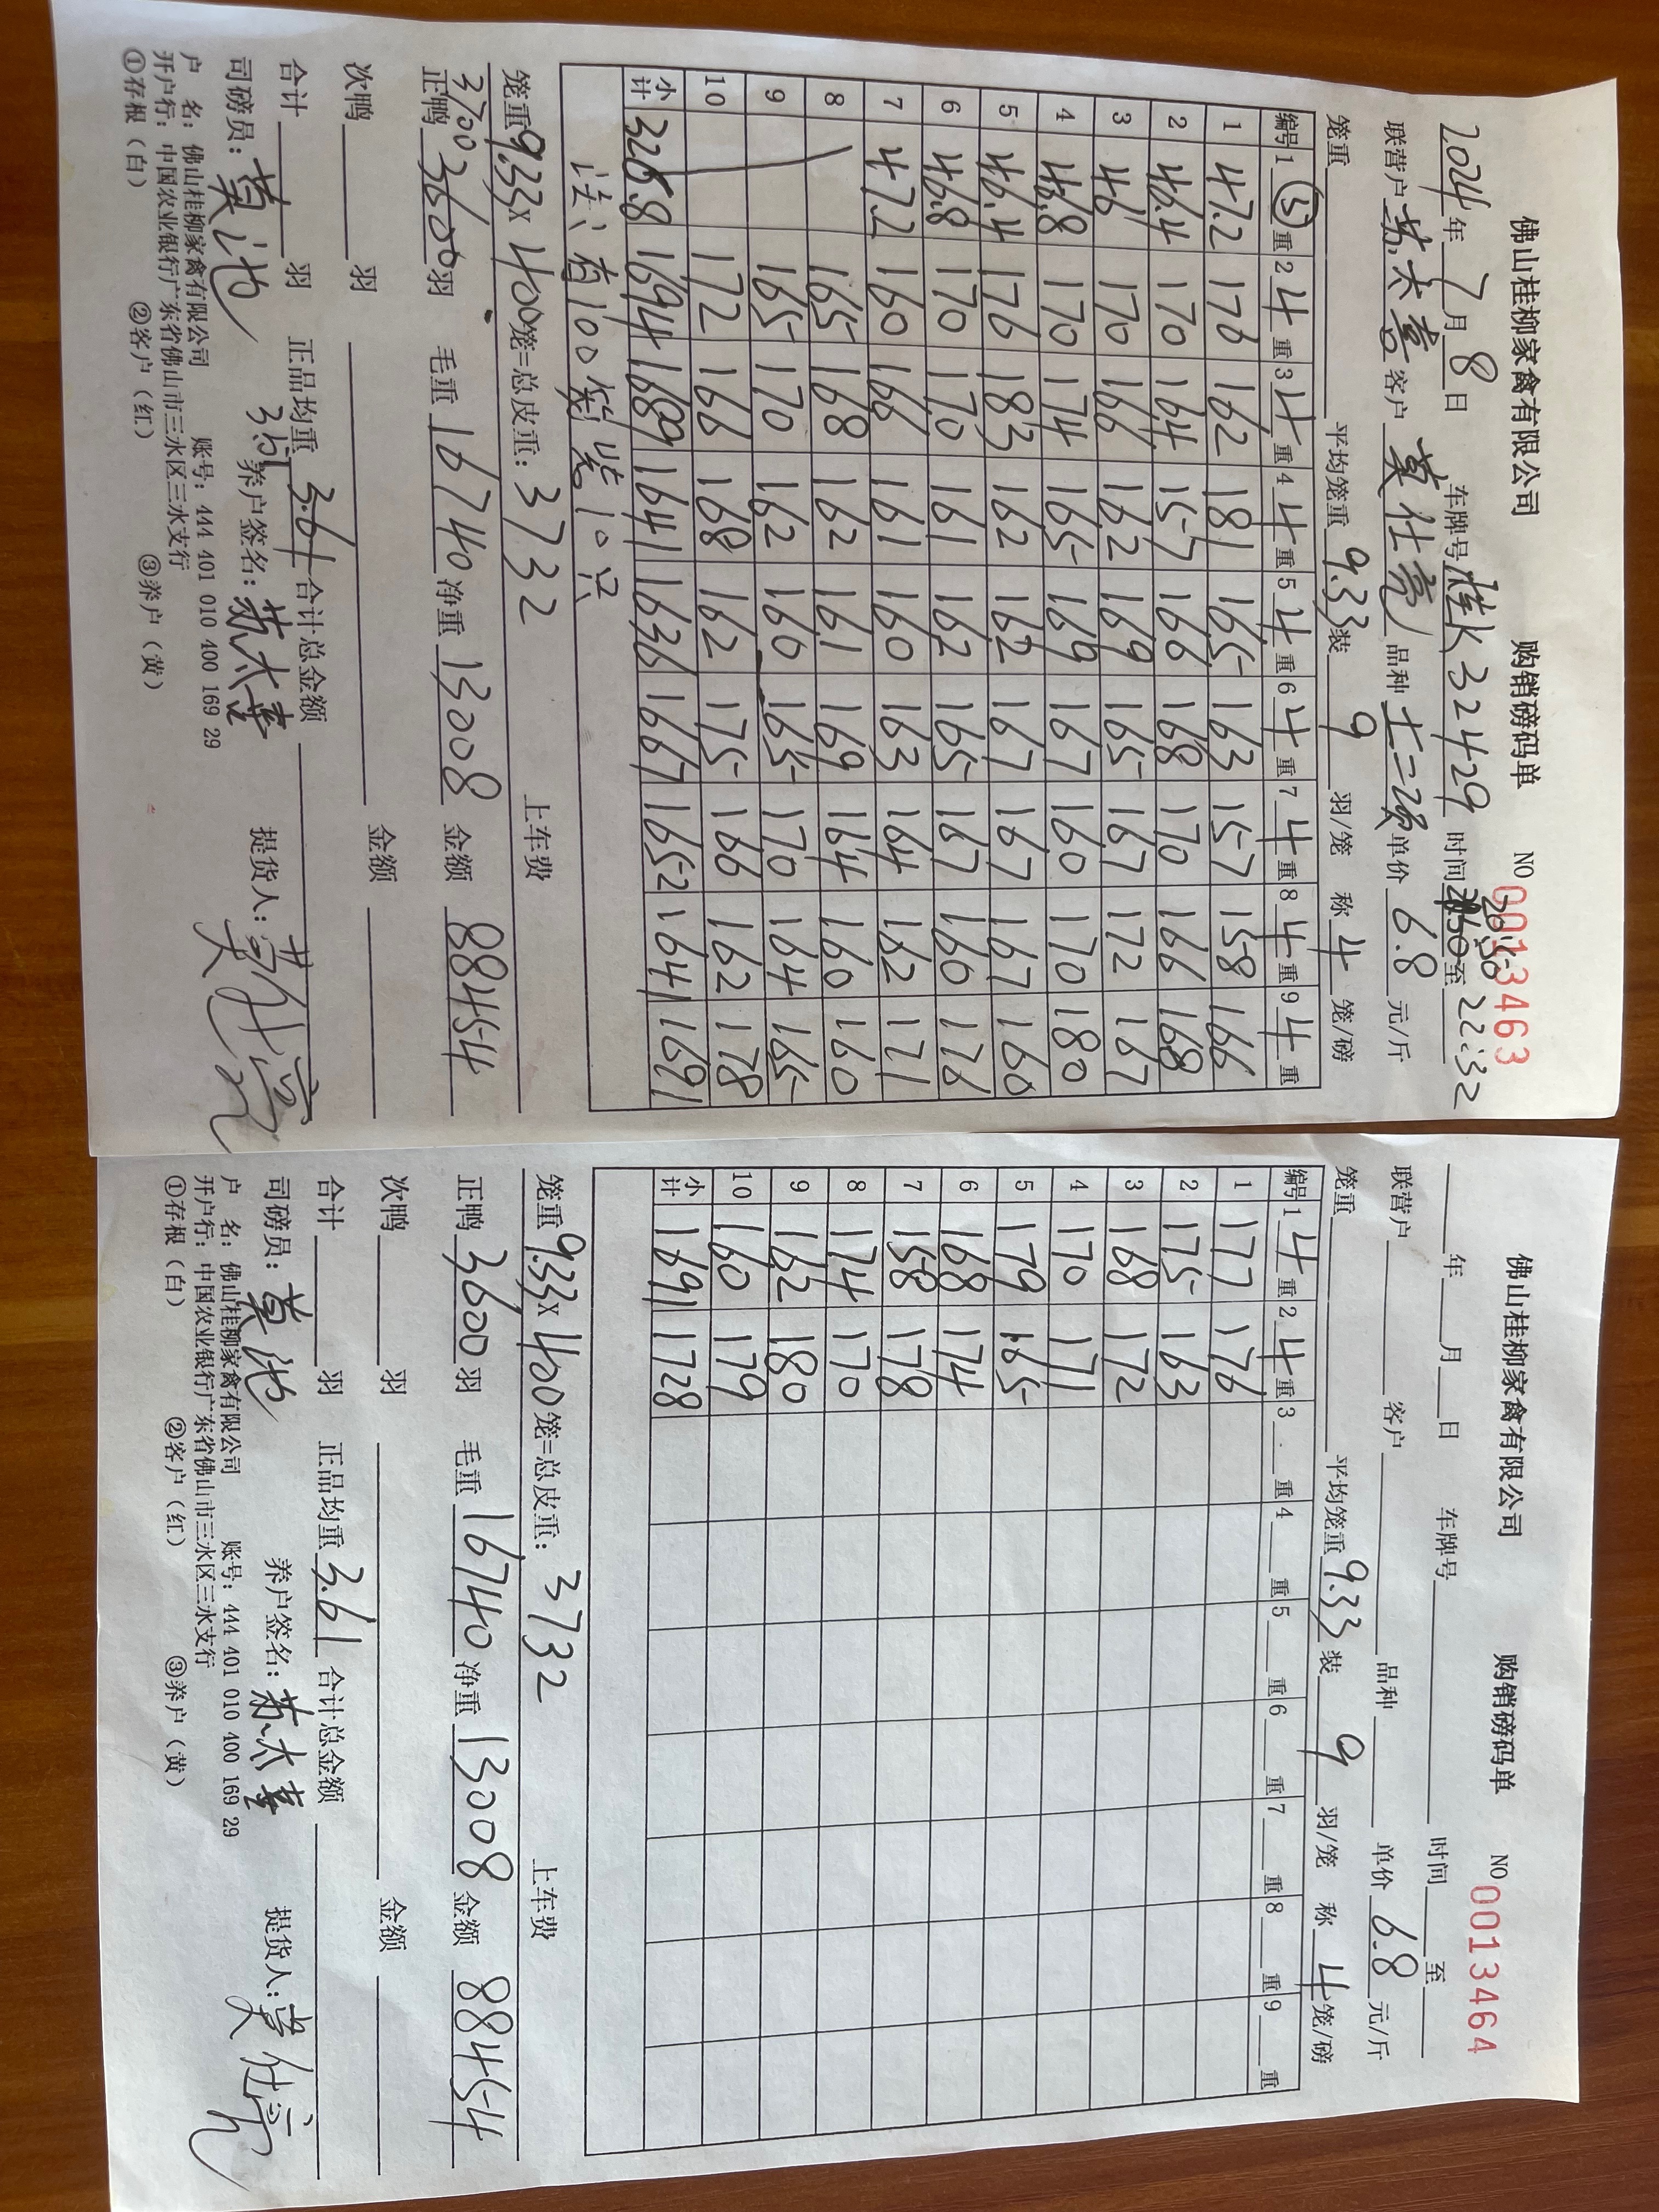 佛山桂柳家禽有限公司 购销磅码单 NO 0013463
2024年7月8日 车牌号桂K32429 时间20:50至22:32
联营户苏太喜 客户莫仕亮 品种 单价6.8元/斤
笼重 平均笼重9.33装9羽/笼 称4笼/磅
编号 1⑤重 2 4重 3 4重 4 4重 5 4重 6 4重 7 4重 8 4重 9 4重
1 47.2 176 162 181 165 163 157 158 166
2 46.4 170 164 157 166 168 170 166 168
3 46 170 166 162 169 165 167 172 167
4 46.8 170 174 165 169 167 160 170 180
5 46.4 176 183 162 162 167 167 167 160
6 46.8 170 170 161 162 165 167 160 176
7 47.2 160 166 161 160 163 164 162 171
8 165 168 162 161 169 164 160 160
9 165 170 162 160 165 170 164 165
10 172 166 168 162 175 166 162 178
小计 326.8 1694 1689 1641 1636 1667 1652 1641 1691
注:有100笼装10只
笼重9.33x400笼=总皮重:3732 上车费
3700
正鸭3600羽 毛重16740净重13008金额88454
次鸭 羽 金额
合计 羽 正品均重3.61合计总金额
3.51
司磅员:莫池 养户签名:苏太喜 提货人:莫仕亮
户 名:佛山桂柳家禽有限公司 账号:444 401 010 400 169 29
开户行:中国农业银行广东省佛山市三水区三水支行
①存根(白) ②客户(红) ③养户(黄)
佛山桂柳家禽有限公司 购销磅码单 NO 0013464
年 月 日 车牌号 时间 至
联营户 客户 品种 单价6.8元/斤
笼重 平均笼重9.33装9羽/笼 称4笼/磅
编号 1 4重 2 4重 3 重 4 重 5 重 6 重 7 重 8 重 9 重
1 177 176
2 175 163
3 168 172
4 170 171
5 179 165
6 168 174
7 158 178
8 174 170
9 162 180
10 160 179
小计 1691 1728
笼重9.33x400笼=总皮重:3732 上车费
正鸭3600羽 毛重16740净重13008金额88454
次鸭 羽 金额
合计 羽 正品均重3.61合计总金额
司磅员:莫池 养户签名:苏太喜 提货人:莫仕亮
户 名:佛山桂柳家禽有限公司 账号:444 401 010 400 169 29
开户行:中国农业银行广东省佛山市三水区三水支行
①存根(白) ②客户(红) ③养户(黄)